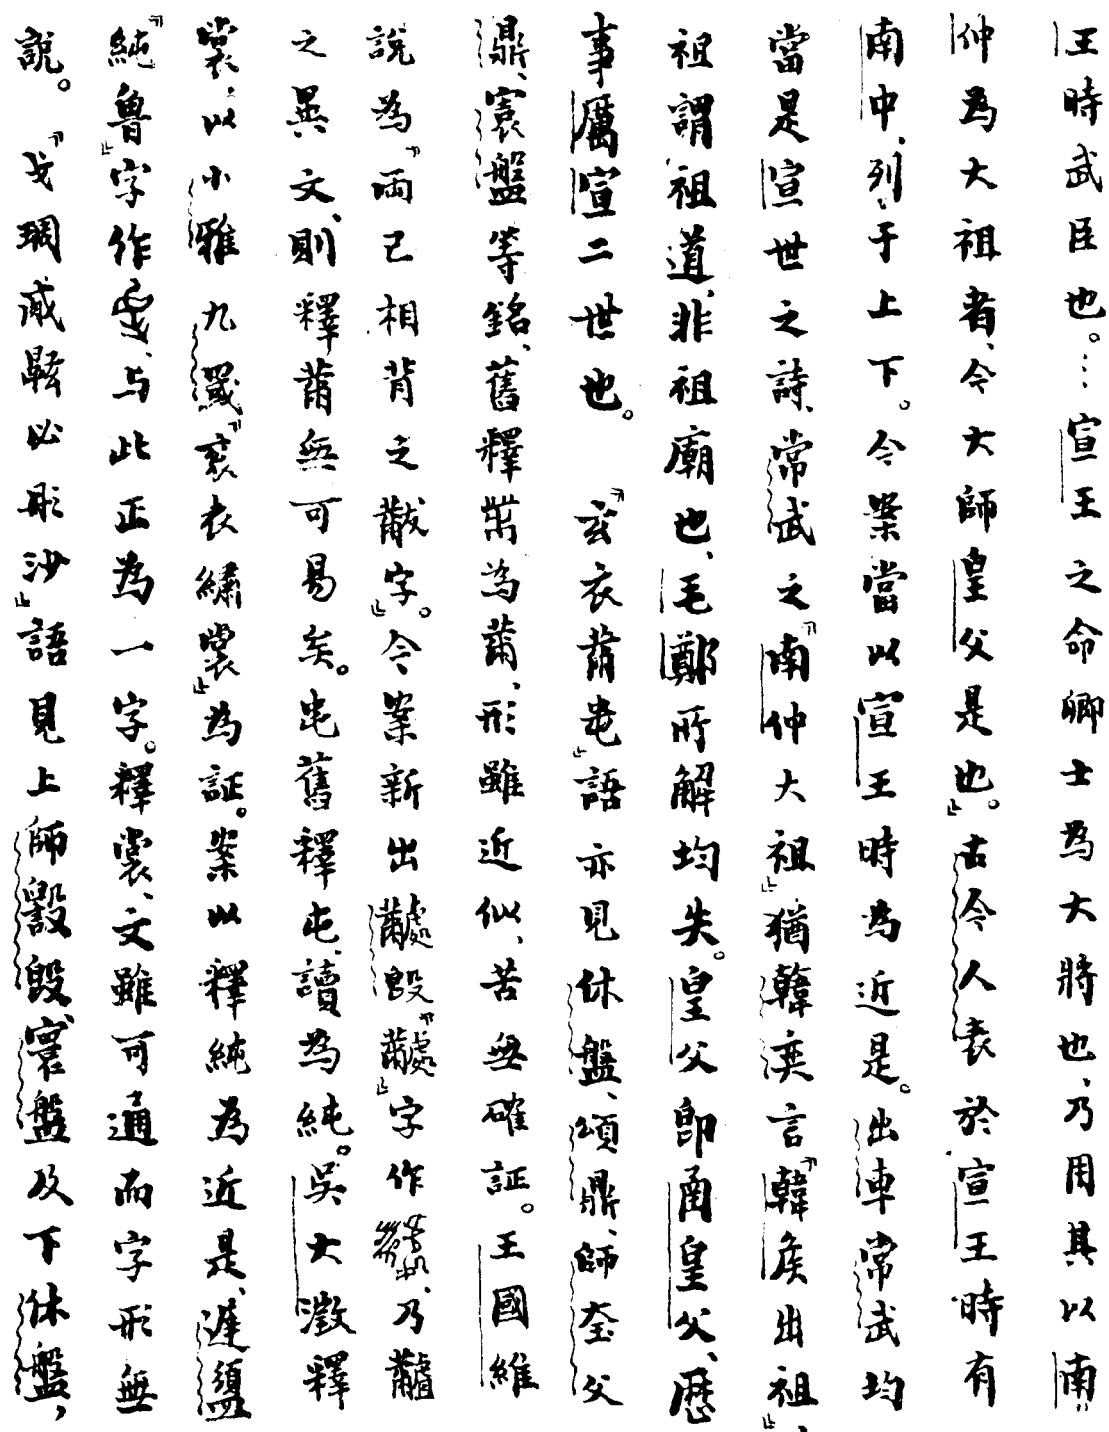 王時武臣也。…宣王之命卿士為大將也、乃用其以南
仲為大祖者、今大師皇父是也。」古今人表於宣王時有
南中、列于上下。今案當以宣王時為近是。出車常武均
當是宣世之詩、常武之『南仲大祖』猶韓奕言『韓侯出祖』、
祖謂祖道、非祖廟也、毛鄭所解均失。皇父即函皇父、歷
事厲宣二世也。 『玄衣黹屯』語亦見休盤、頌鼎、師𡘇父
鼎、寰盤等銘、舊釋黹為黼、形雖近似、苦無確証。王國維
說為『兩己相背之黻字』。今案新出𪓐𣪘『𪓐』字作、乃𪓐
之異文、則釋黹無可易矣。屯舊釋屯、讀為純。吳大澂釋
裳、以小雅九罭『袞衣繡裳』為証。案以釋純為近是、遟盨
『純魯』字作、与此正為一字。釋裳、文雖可通而字形無
說。 『戈琱烕䩋必彤沙』語見上師𣪘𣪘、寰盤及下休盤，